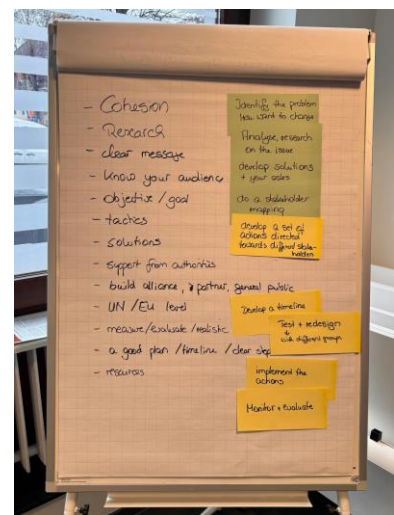 - Cohesion
- Research
- clear message
- Know your audience
- Objective / goal
- tactics
- solutions
- support from authorities
- build alliance, partner, general public
- UN / EU level
- measure/evaluate/realistic
- a good plan /timeline / clear step
- resources
Identify the problem
you want to change
Analyse, research
on the issue
develop solutions
+ your asks
do a stakeholder
mapping
develop a set of
actions directed
towards different stake-
holders
Develop a timeline
Test + redesign
with different groups
implement the
actions
Monitor + evaluate